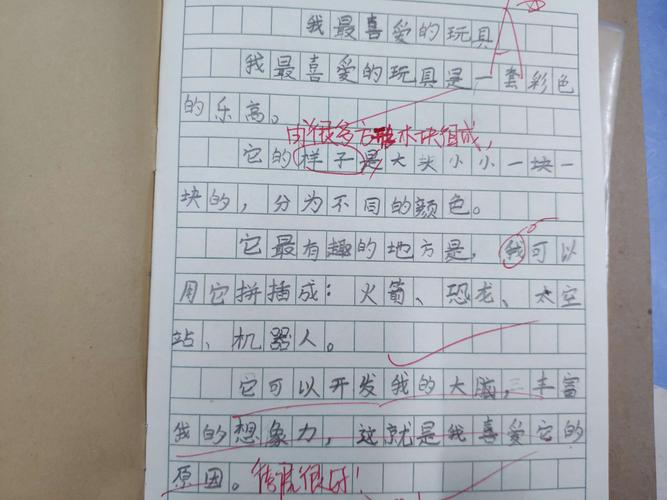 我最喜爱的玩具
我最喜爱的玩具是一套彩色
的乐高。
由很多方形木块组成,
它的样子是大头小小一块一
块的,分为不同的颜色。
它最有趣的地方是,我可以
用它拼插成:火箭、恐龙、太空
站、机器人。
它可以开发我的大脑,丰富
我的想象力,这就是我喜爱它的
原因。很好!